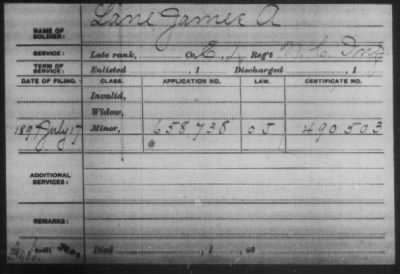 NAME OF SOLDIER: Lane James A
SERVICE: Late rank, Co. E, Reg't N.C. Inf
TERM OF SERVICE: Enlisted , 1 Discharged , 1
DATE OF FILING. CLASS. APPLICATION NO. LAW. CERTIFICATE NO.
Invalid,
Widow,
1897 July 17 Minor, 658,738 05 490503
ADDITIONAL SERVICES:
REMARKS:
Died , 1 , at